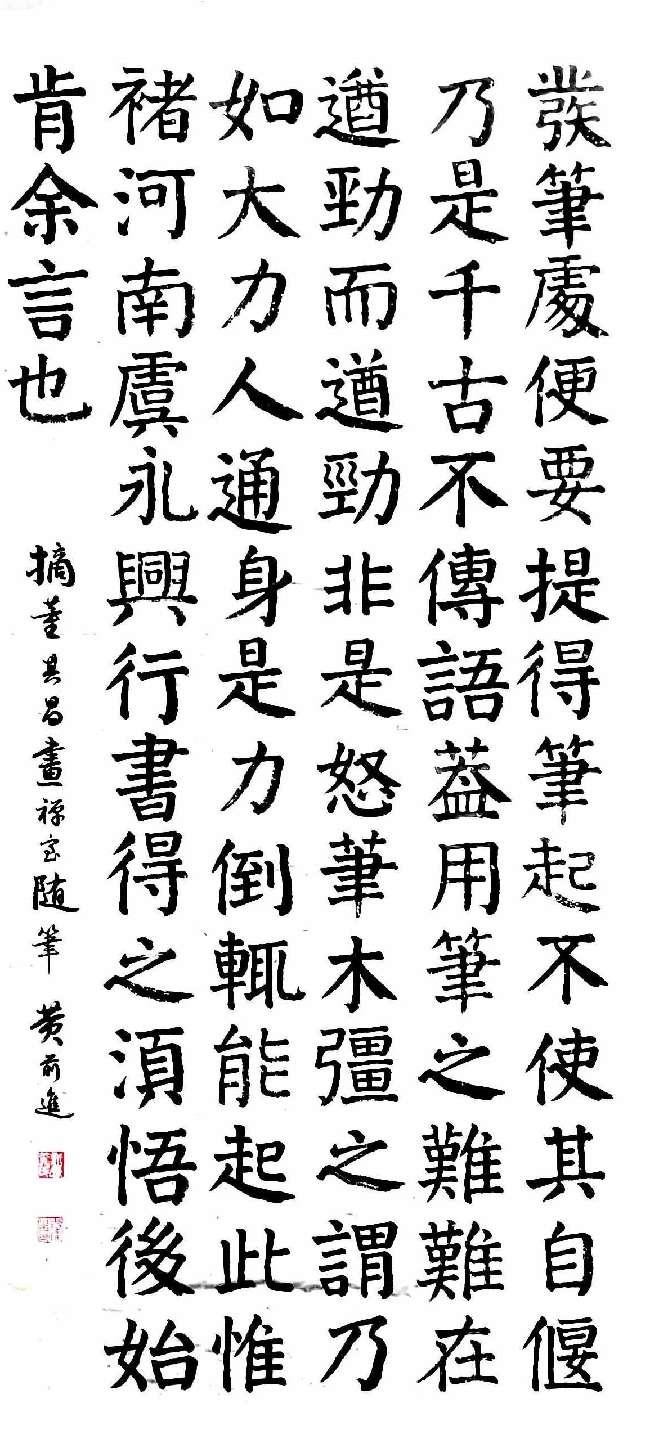 發筆處便要提得筆起不使其自偃
乃是千古不傳語葢用筆之難難在
遒勁而遒勁非是怒筆木彊之謂乃
如大力人通身是力倒輒能起此惟
褚河南虞永興行書得之湏悟後始
肯余言也
摘董其昌畫禪室随筆 黄前進